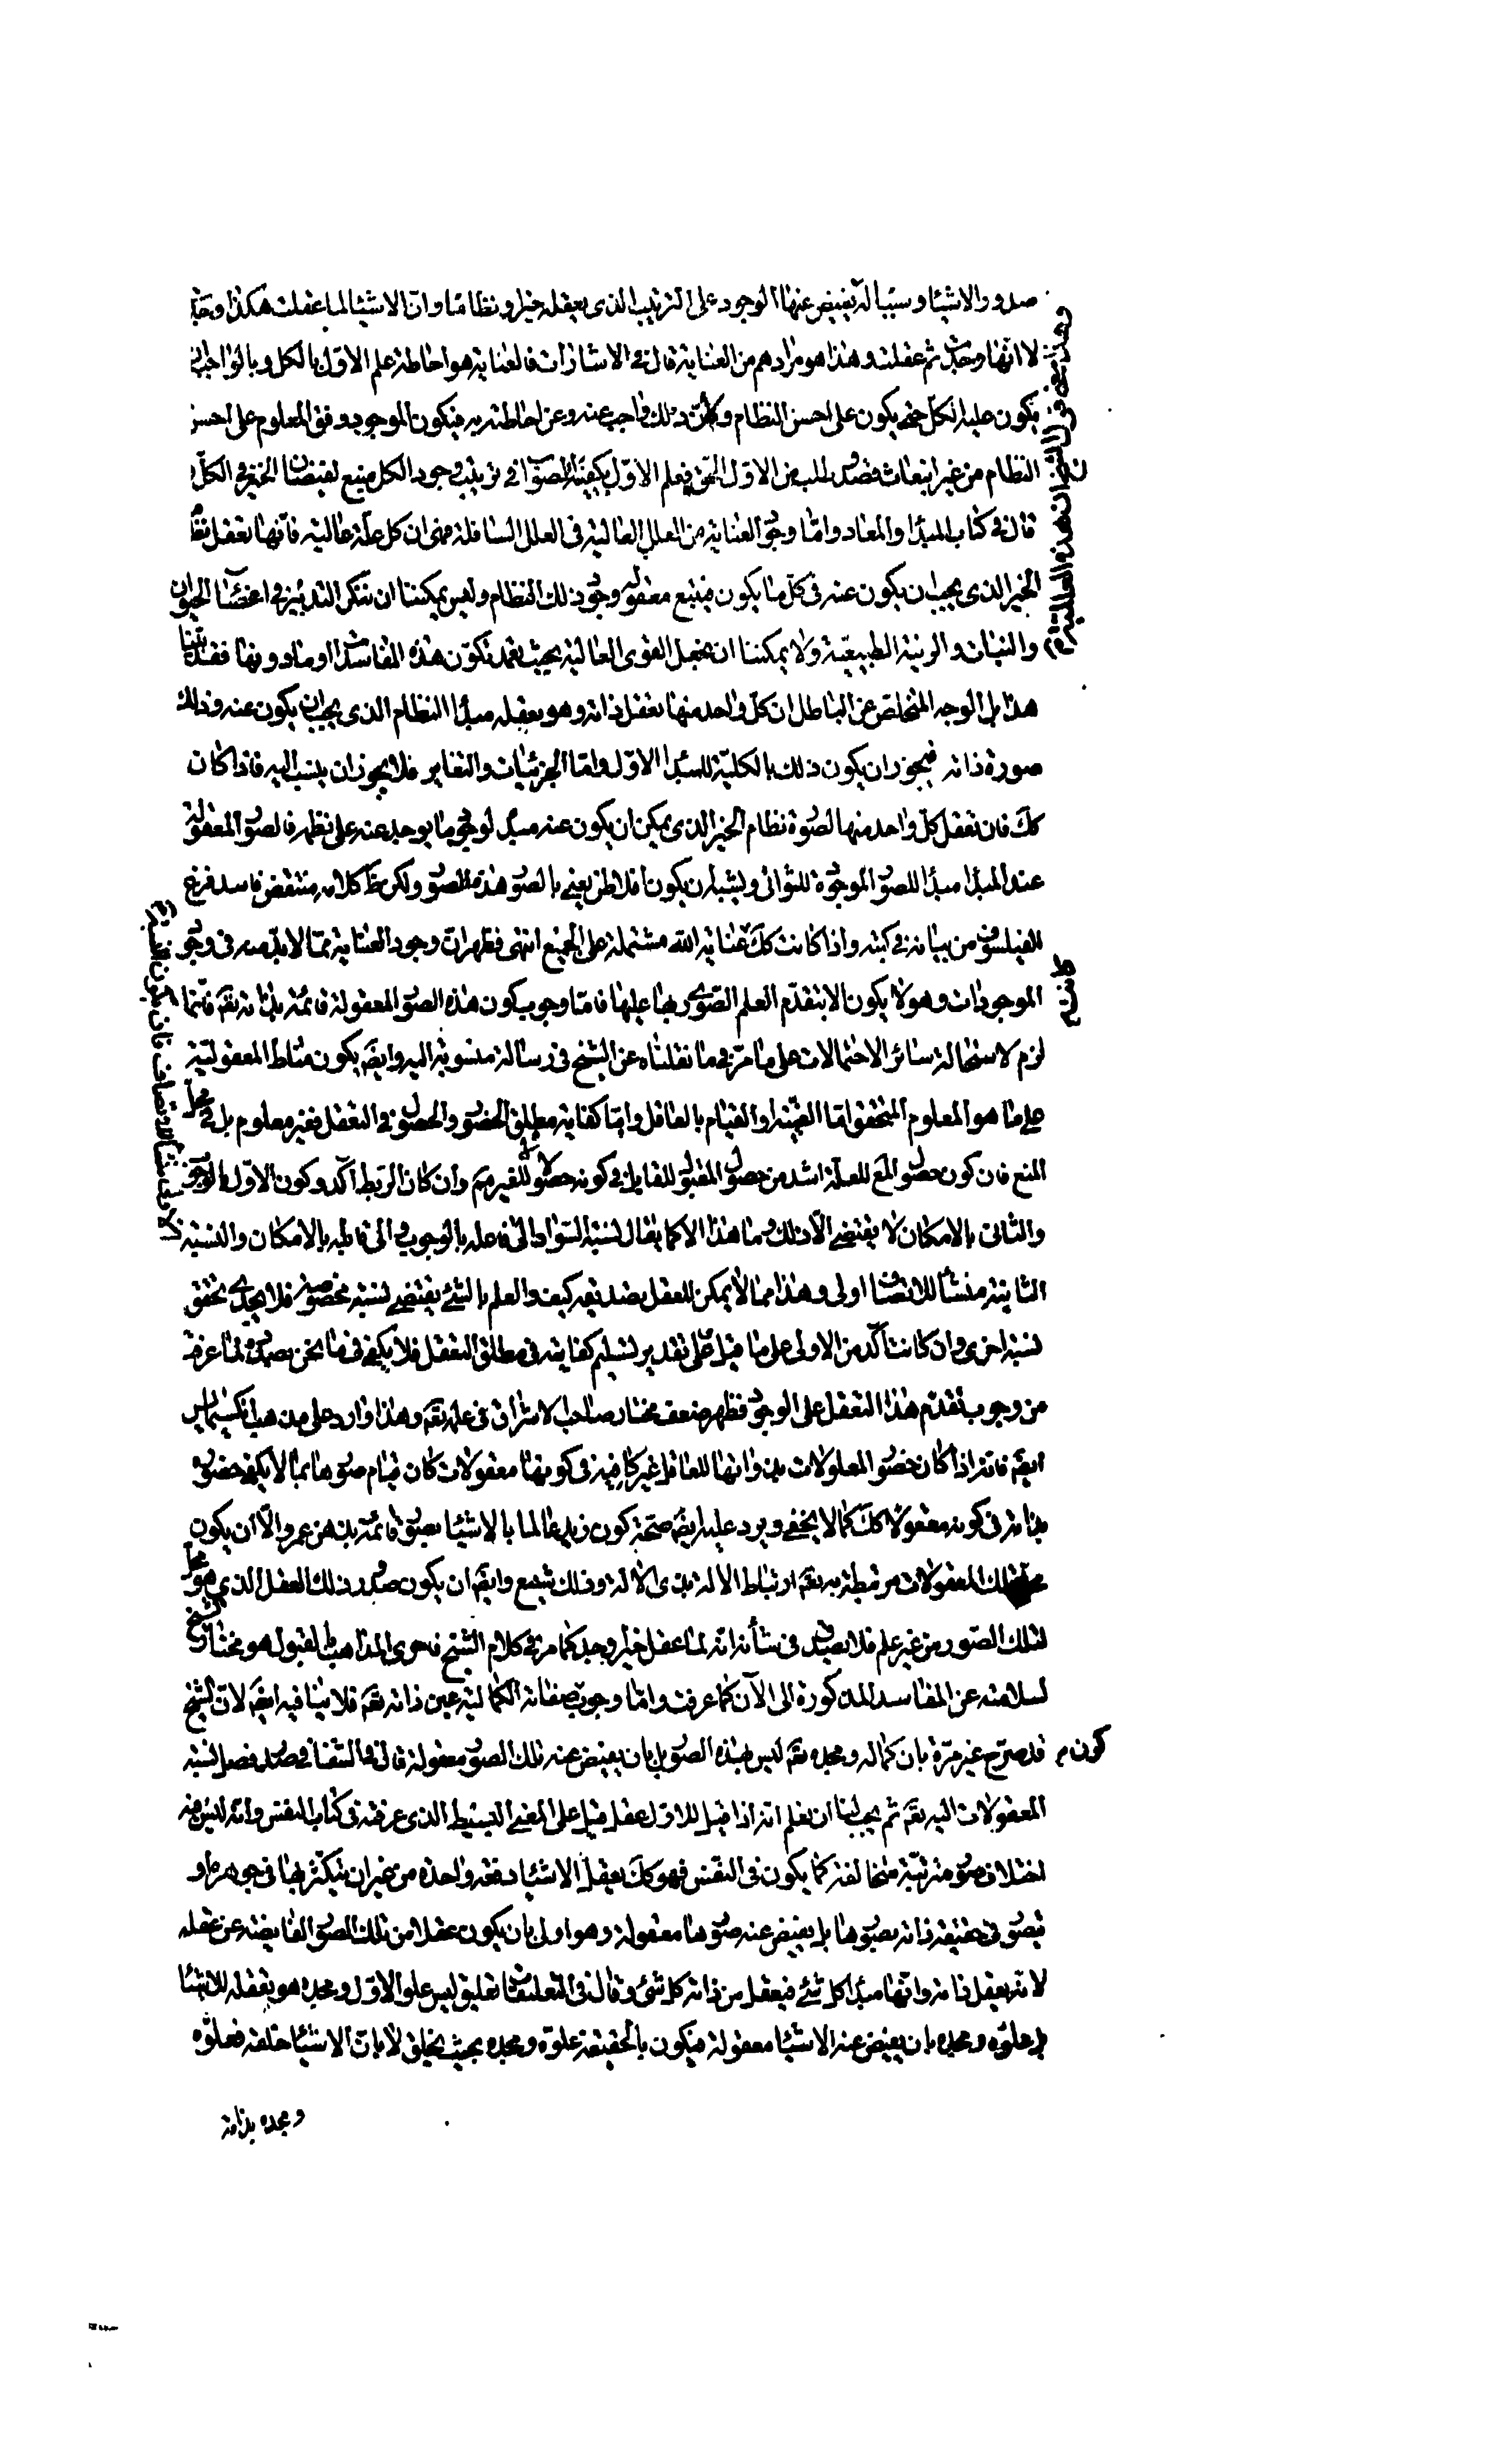 صدور الاشيا وسببا له يفيض عنها الوجود على الترتيب الذى يعقله خيرا ونظاما وان الاشيا لما عقلت هكذا وجدت
لا انها وجدت ثم عقلت وهذا هو مرادهم من العناية قال فى الاشارات فالعناية هو احاطة علم الاول بالكل وبالواجب ان
يكون عليه الكل حتى يكون على احسن النظام وبان ذلك واجب عنه وعن احاطته به فيكون الموجود وفق المعلوم على احسن
النظام من غير انبعاث قصد وطلب من الاول الحق فعلم الاول بكيفية الصواب فى ترتيب وجود الكل منبع لفيضان الخير فى الكل
قال فى كتاب المبدا والمعاد واما وجود العناية من العلل العالية فى العلل السافلة فهى ان كل علة عالية فانها تعقل نظام
الخير الذى يجب ان يكون عنه فى كل ما يكون فيتبع معقوله وجود ذلك النظام وليس يمكننا ان ننكر التدبير فى اعضا الحيوان
والنبات والزينة الطبيعية ولا يمكننا ان نجعل القوى العالية بحيث تعمد تكون هذه الفاسدات او ما دونها فقد بينا
هذا بل الوجه المتخلص عن الباطل ان كل واحد منها يعقل ذاته وهو يعقله مبدا النظام الذى يجب ان يكون عنه وذلك
صورة ذاته فيجوز ان يكون ذلك بالكلية للمبدا الاول واما الجزئيات والتغاير فلا يجوز ان ينسب اليه فاذا كان
كك فان تعقل كل واحد منها لصورة نظام الخير الذى يمكن ان يكون عنه مبدا لوجود ما يوجد عنه على نظمه فالصور المعقولة
عند المبدا مبدا للصور الموجودة للثوانى ويشبه ان يكون افلاطن يعنى بالصور هذه الصور ولكن ظ كلامه منتقض فاسد فرغ
الفيلسوف من بيانه فى كتبه واذا كانت كك عناية الله مشتملة على الجميع انتهى فظهر ان وجود العناية مما لا بد منه فى وجود
الموجودات وهو لا يكون الا بتقدم العلم الصورى بها عليها فاما وجوب كون هذه الصور المعقولة قائمة بذاته تع فانما
لزم لاستحالة سائر الاحتمالات على ما مر فى ما نقلناه عن الشيخ فى رسالة منسوبة اليه وايضا يكون مناط المعقولية
على ما هو المعلوم المتحقق اما العينية او القيام بالعاقل واما كفاية مطلق الحضور والحصول فى التعقل فغير معلوم بل فى محل
المنع فان كون حصول المع للعلة اشد من حصول المقبول للقابل فى كونه حصولا للغير مم وان كان الربط آكد وكون الاول بالوجوب
والثانى بالامكان لا يقتضى الا ذلك وما هذا الا كما يقال نسبة السواد الى فاعله بالوجوب والى قابله بالامكان والنسبة
الثانية منشا للاتصاف اولى وهذا مما لا يمكن للعقل تصديقه كيف والعلم بالشئ يقتضى نسبة مخصوصة فلا يجدى تحقق
نسبة اخرى وان كانت آكد من الاولى على ما قيل على تقدير تسليم كفايته فى مطلق التعقل فلا يكفى فى ما نحن بصدده لما عرفت
من وجوب تقدم هذا التعقل على الوجود فظهر ضعف مختار صاحب الاشراق فى علمه تع وهذا وارد على مذهب انكسيمايس
ايضا فانه اذا كان حضور المعلولات بذواتها للعاقل غير كافية فى كونها معقولات كان قيام صورها بما لا يكفى حضوره
بذاته فى كونه معقولا كك كما لا يخفى ويرد عليه ايضا صحة كون زيد عالما بالاشيا بصور قائمة بذهن عمرو الا ان يكون
تلك المعقولات مرتبطة به تع ارتباط الالة بذى الالة وذلك شنيع وايضا ان يكون صدور ذلك العقل الذى هو محل
لتلك الصور من غير علم فلا يصدق فى شأنه انه لما عقل خيرا وجد كما مر فى كلام الشيخ فاحرى المذاهب بالقبول هو مختار الشيخ
لسلامته عن المفاسد المذكورة الى الآن كما عرفت واما وجوب صفاته الكمالية عين ذاته تع فلا ينافيه ايضا لان الشيخ
قد صرح غير مرة بان كماله ومجده تع ليس بهذه الصور بل بان يفيض عنه تلك الصور معقولة قال فى الشفا فى صدر فصل نسبة
كون م
المعقولات اليه تع ثم يجب لنا ان نعلم انه اذا قيل للاول عقل قيل على المعنى البسيط الذى عرفته فى كتاب النفس وانه ليس فيه
اختلاف صور مترتبة متخالفة كما يكون فى النفس فهو كك يعقل الاشيا دفعة واحدة من غير ان يتكثر بها فى جوهره او
تتصور فى حقيقة ذاته بصورها بل يفيض عنه صورها معقولة وهو اولى بان يكون عقلا من تلك الصور الفايضة عن عقله
لانه يعقل ذاته وانها مبدا كل شئ فيعقل من ذاته كل شئ وقال فى التعليقات تعليق ليس علو الاول ومجده هو تعقله للاشيا
بل علوه ومجده بان يفيض عنه الاشيا معقولة فيكون بالحقيقة علوه ومجده بحيث يخلق لا بان الاشيا خلقه فعلوه
ومجده بذاته